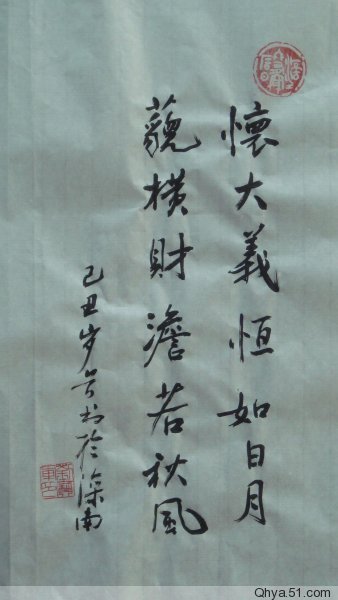 懷大義恒如日月
藐橫財澹若秋風
己丑岁
於深南
Qhya.51.com